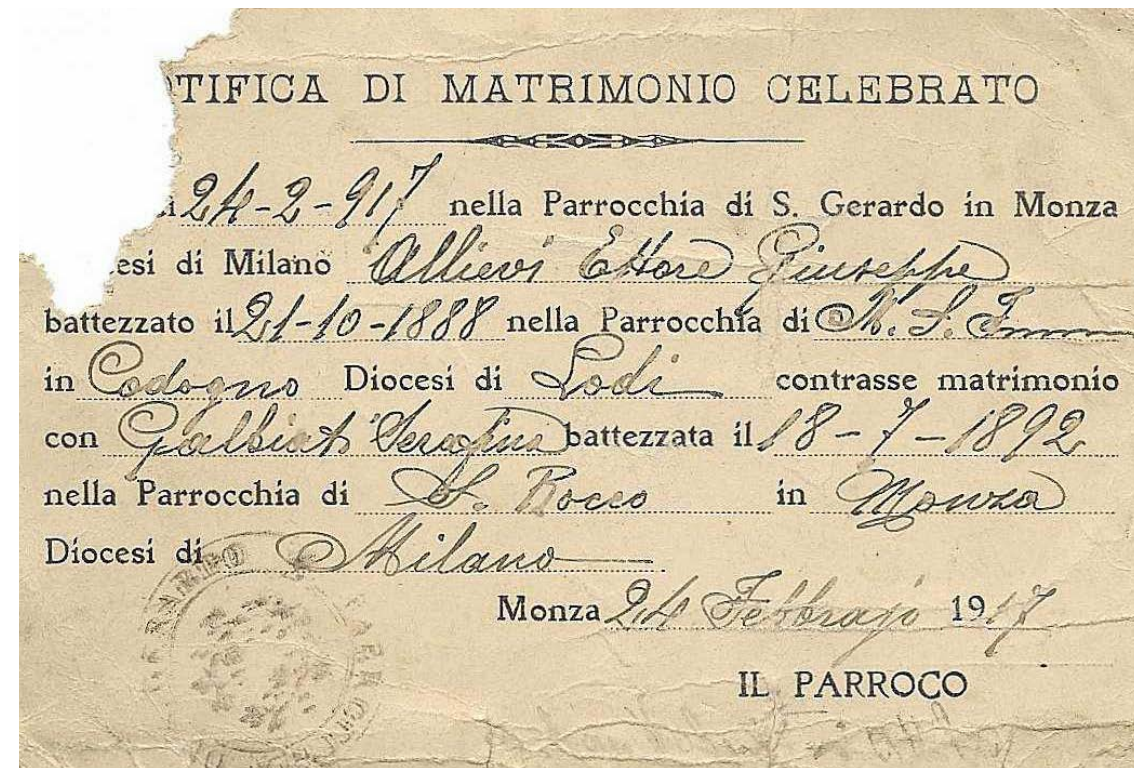 TIFICA DI MATRIMONIO CELEBRATO
24-2-917 nella Parrocchia di S. Gerardo in Monza
esi di Milano Allievi Ettore Giuseppe
battezzato il 21-10-1888 nella Parrocchia di N. S. Imm
in Codogno Diocesi di Lodi contrasse matrimonio
con Galbiati Serafina battezzata il 18-7-1892
nella Parrocchia di S. Rocco in Monza
Diocesi di Milano
Monza 24 Febbrajo 1917
IL PARROCO